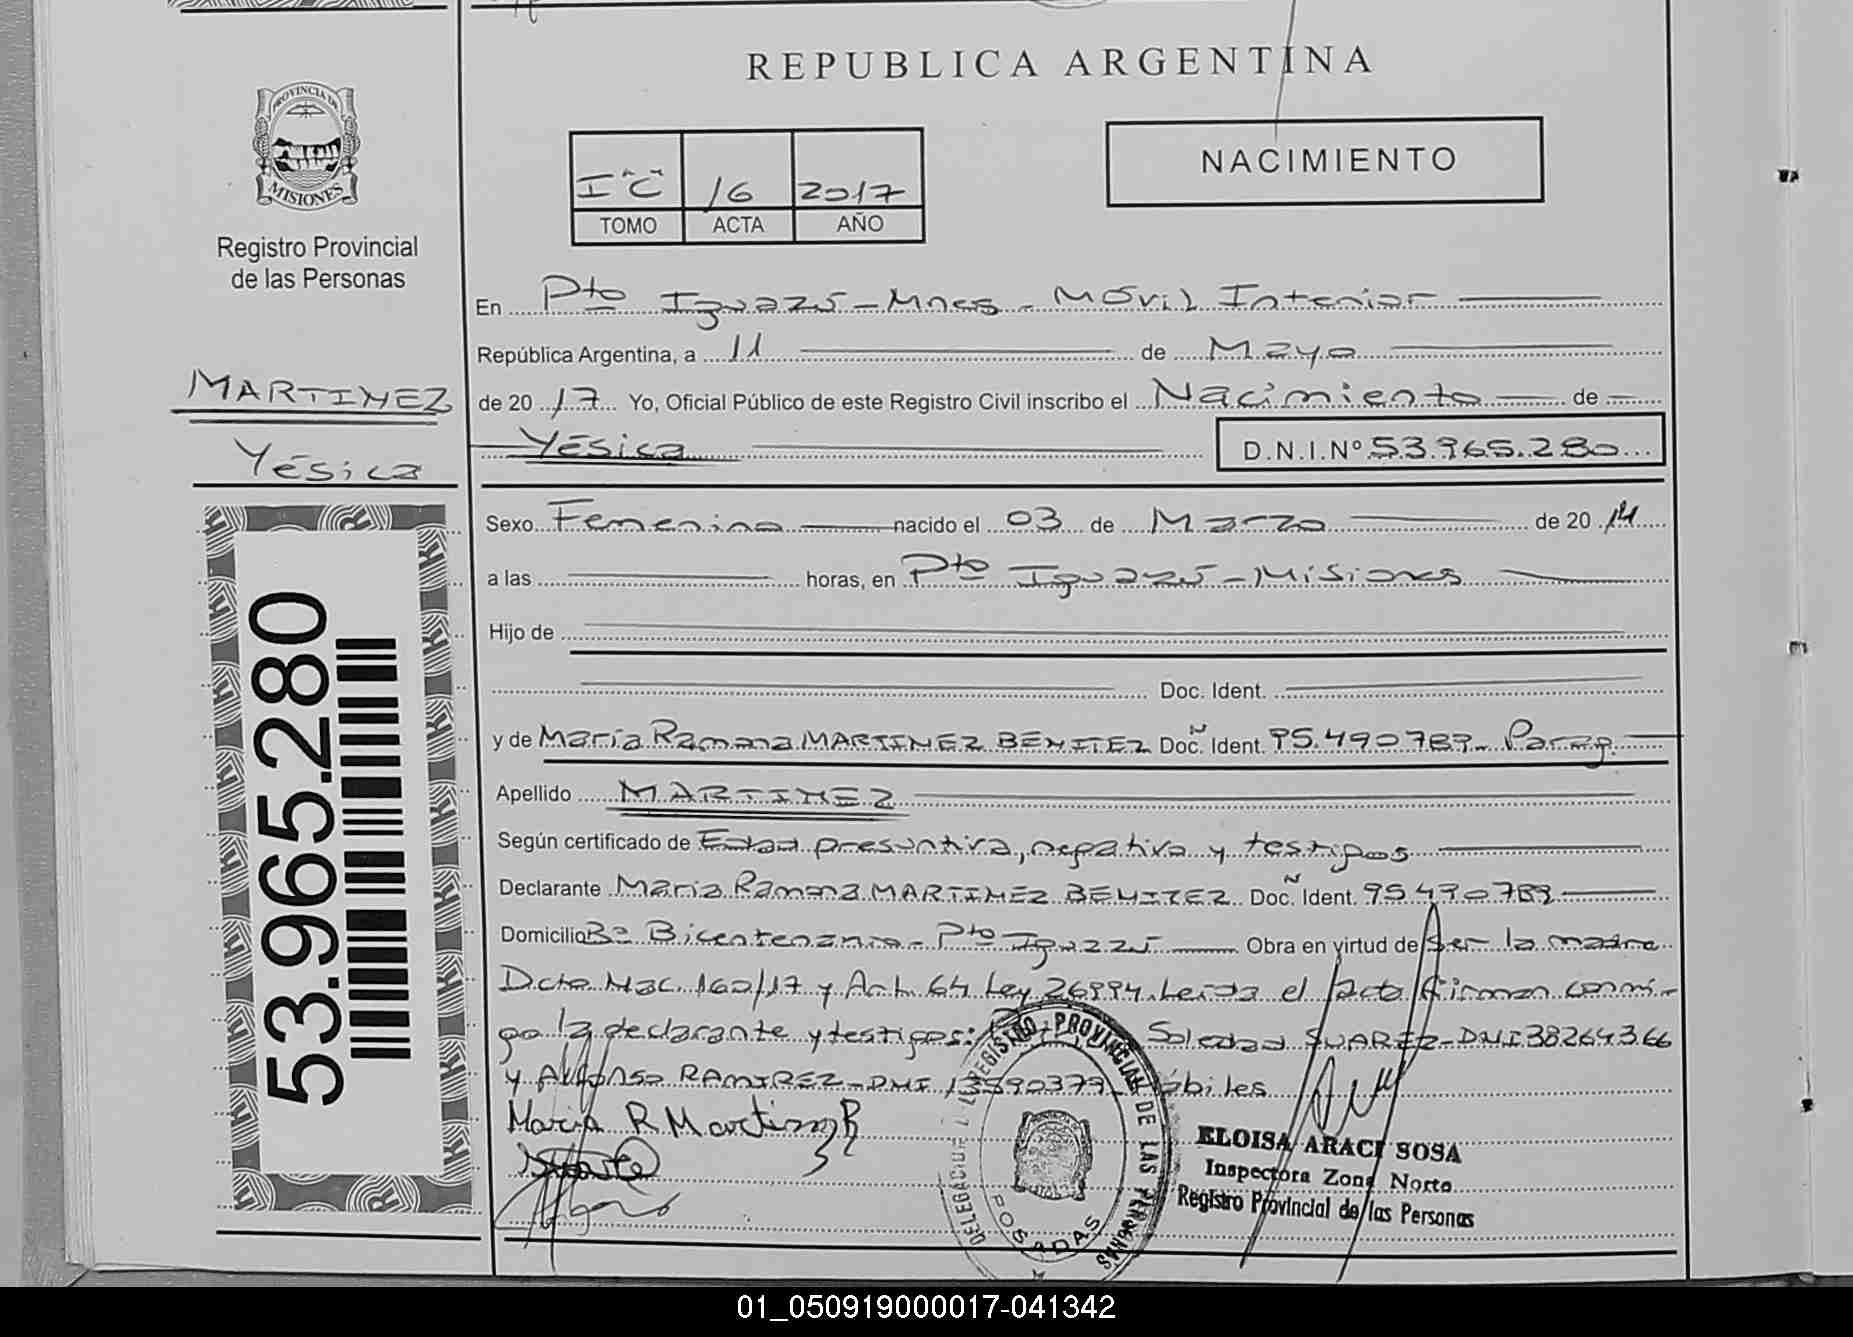 REPUBLICA ARGENTINA
PROVINCIA DE
MISIONES
Registro Provincial
de las Personas
I "C" 16 2017
TOMO ACTA AÑO
NACIMIENTO
En Pto Iguazú - Mnes - Móvil Interior
República Argentina, a 11 de Mayo
MARTINEZ
Yésica
de 20 17 Yo, Oficial Público de este Registro Civil inscribo el Nacimiento de
Yésica D.N.I.Nº 53.965.280
Sexo Femenino nacido el 03 de Marzo de 20 14
a las horas, en Pto Iguazú - Misiones
Hijo de
Doc. Ident.
y de María Ramona MARTINEZ BENITEZ Doc. Ident. 95.490789 Parag.
Apellido MARTINEZ
Según certificado de Edad presuntiva, negativa y testigos
Declarante María Ramona MARTINEZ BENITEZ Doc. Ident. 95490789
Domicilio Bº Bicentenario - Pto Iguazú Obra en virtud de Ser la madre
Dcto Nac. 160/17 y Art. 64 Ley 26994. Leida el Acta firman conmi-
go la declarante y testigos: Soledad SUAREZ - DNI 38264366
y Alfonso RAMIREZ - DNI 13590379 hábiles
Maria R Martinez B
53.965.280
REGISTRO PROVINCIAL DE LAS PERSONAS
POSADAS
ELOISA ARACI SOSA
Inspectora Zona Norte
Registro Provincial de las Personas
01_050919000017-041342